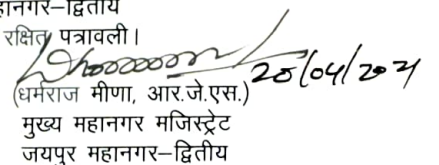 हानगर–द्वितीय
रक्षित पत्रावली।
(धर्मराज मीणा, आर.जे.एस.)
मुख्य महानगर मजिस्ट्रेट
जयपुर महानगर–द्वितीय